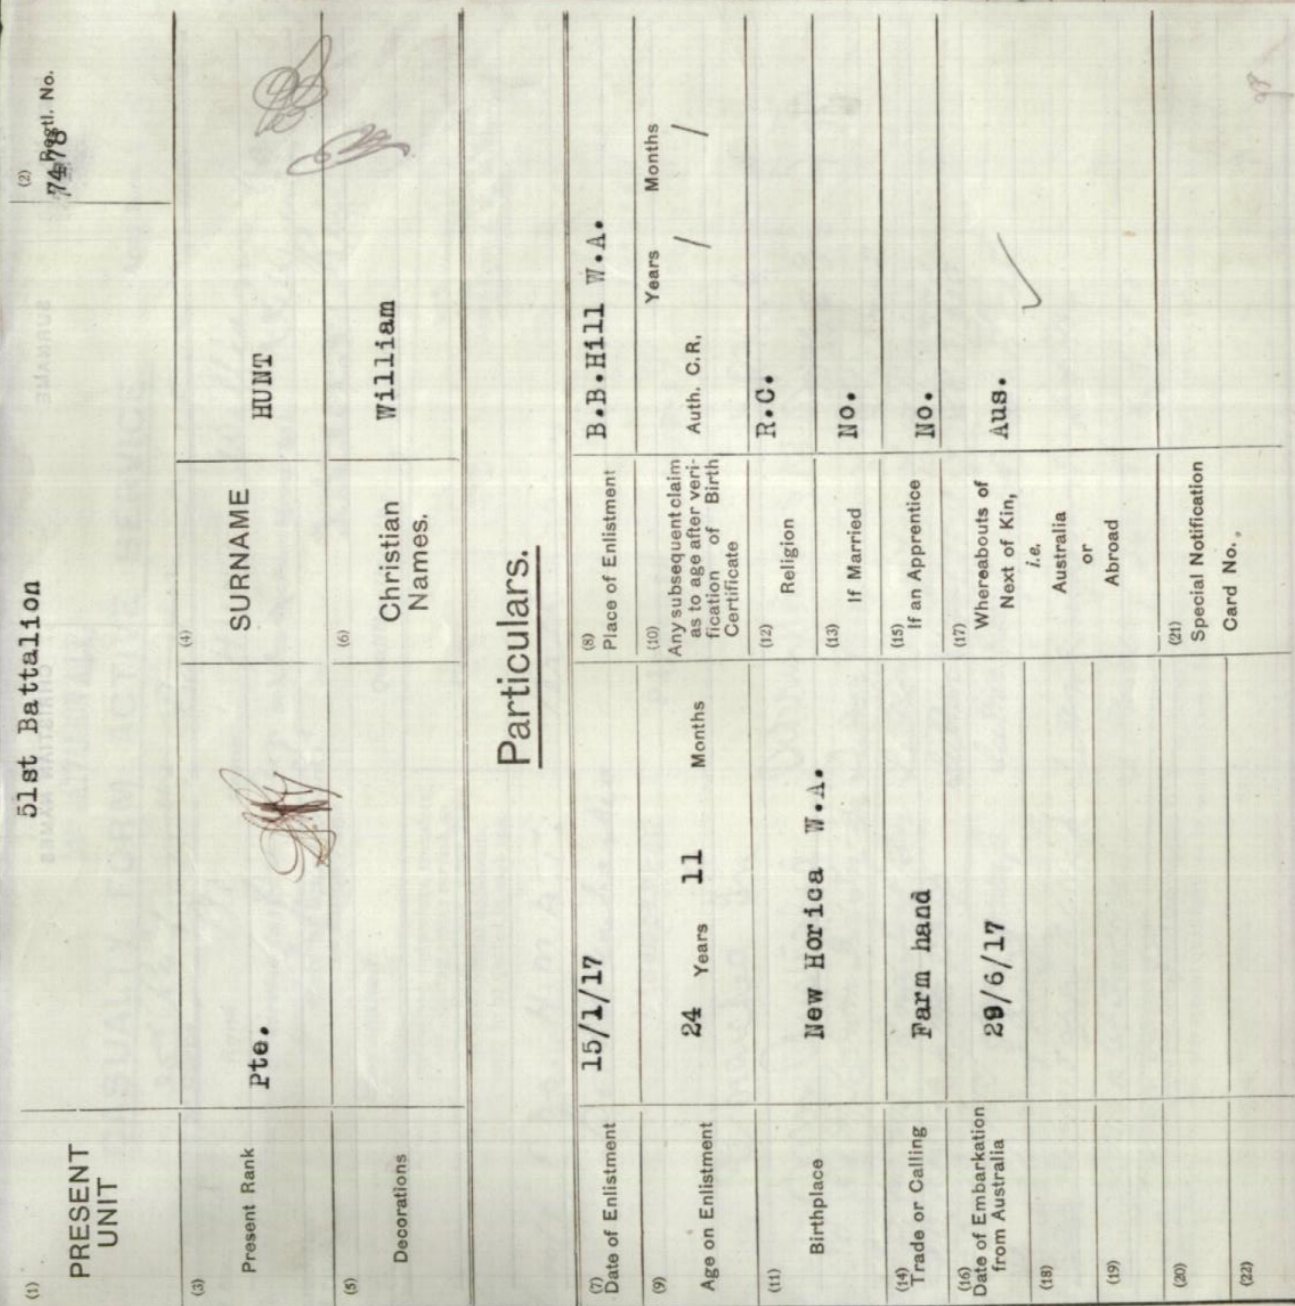 (1) PRESENT UNIT 51st Battalion (2) Regtl. No. 7478
(3) Present Rank Pte. (4) SURNAME HUNT
(5) Decorations (6) Christian Names. William
Particulars.
(7) Date of Enlistment 15/1/17 (8) Place of Enlistment B.B.Hill W.A.
(9) Age on Enlistment 24 Years 11 Months (10) Any subsequent claim as to age after veri-
fication of Birth Certificate Auth. C.R. Years / Months /
(11) Birthplace New Horica W.A. (12) Religion R.C.
(13) If Married No.
(14) Trade or Calling Farm hand (15) If an Apprentice No.
(16) Date of Embarkation from Australia 29/6/17 (17) Whereabouts of Next of Kin, i.e. Australia or Abroad Aus.
(18)
(19)
(20) (21) Special Notification Card No.
(22)